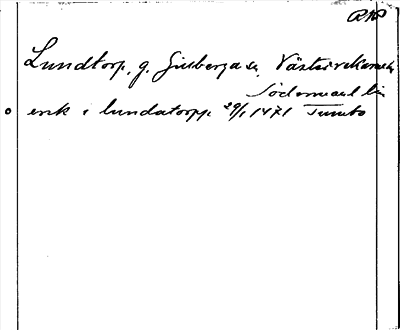 Lundtorp, g. Giuberga sn, Västerrekarne hd
Södermanl. län
enk i lundatorpp 29/1 1471 Tumbo